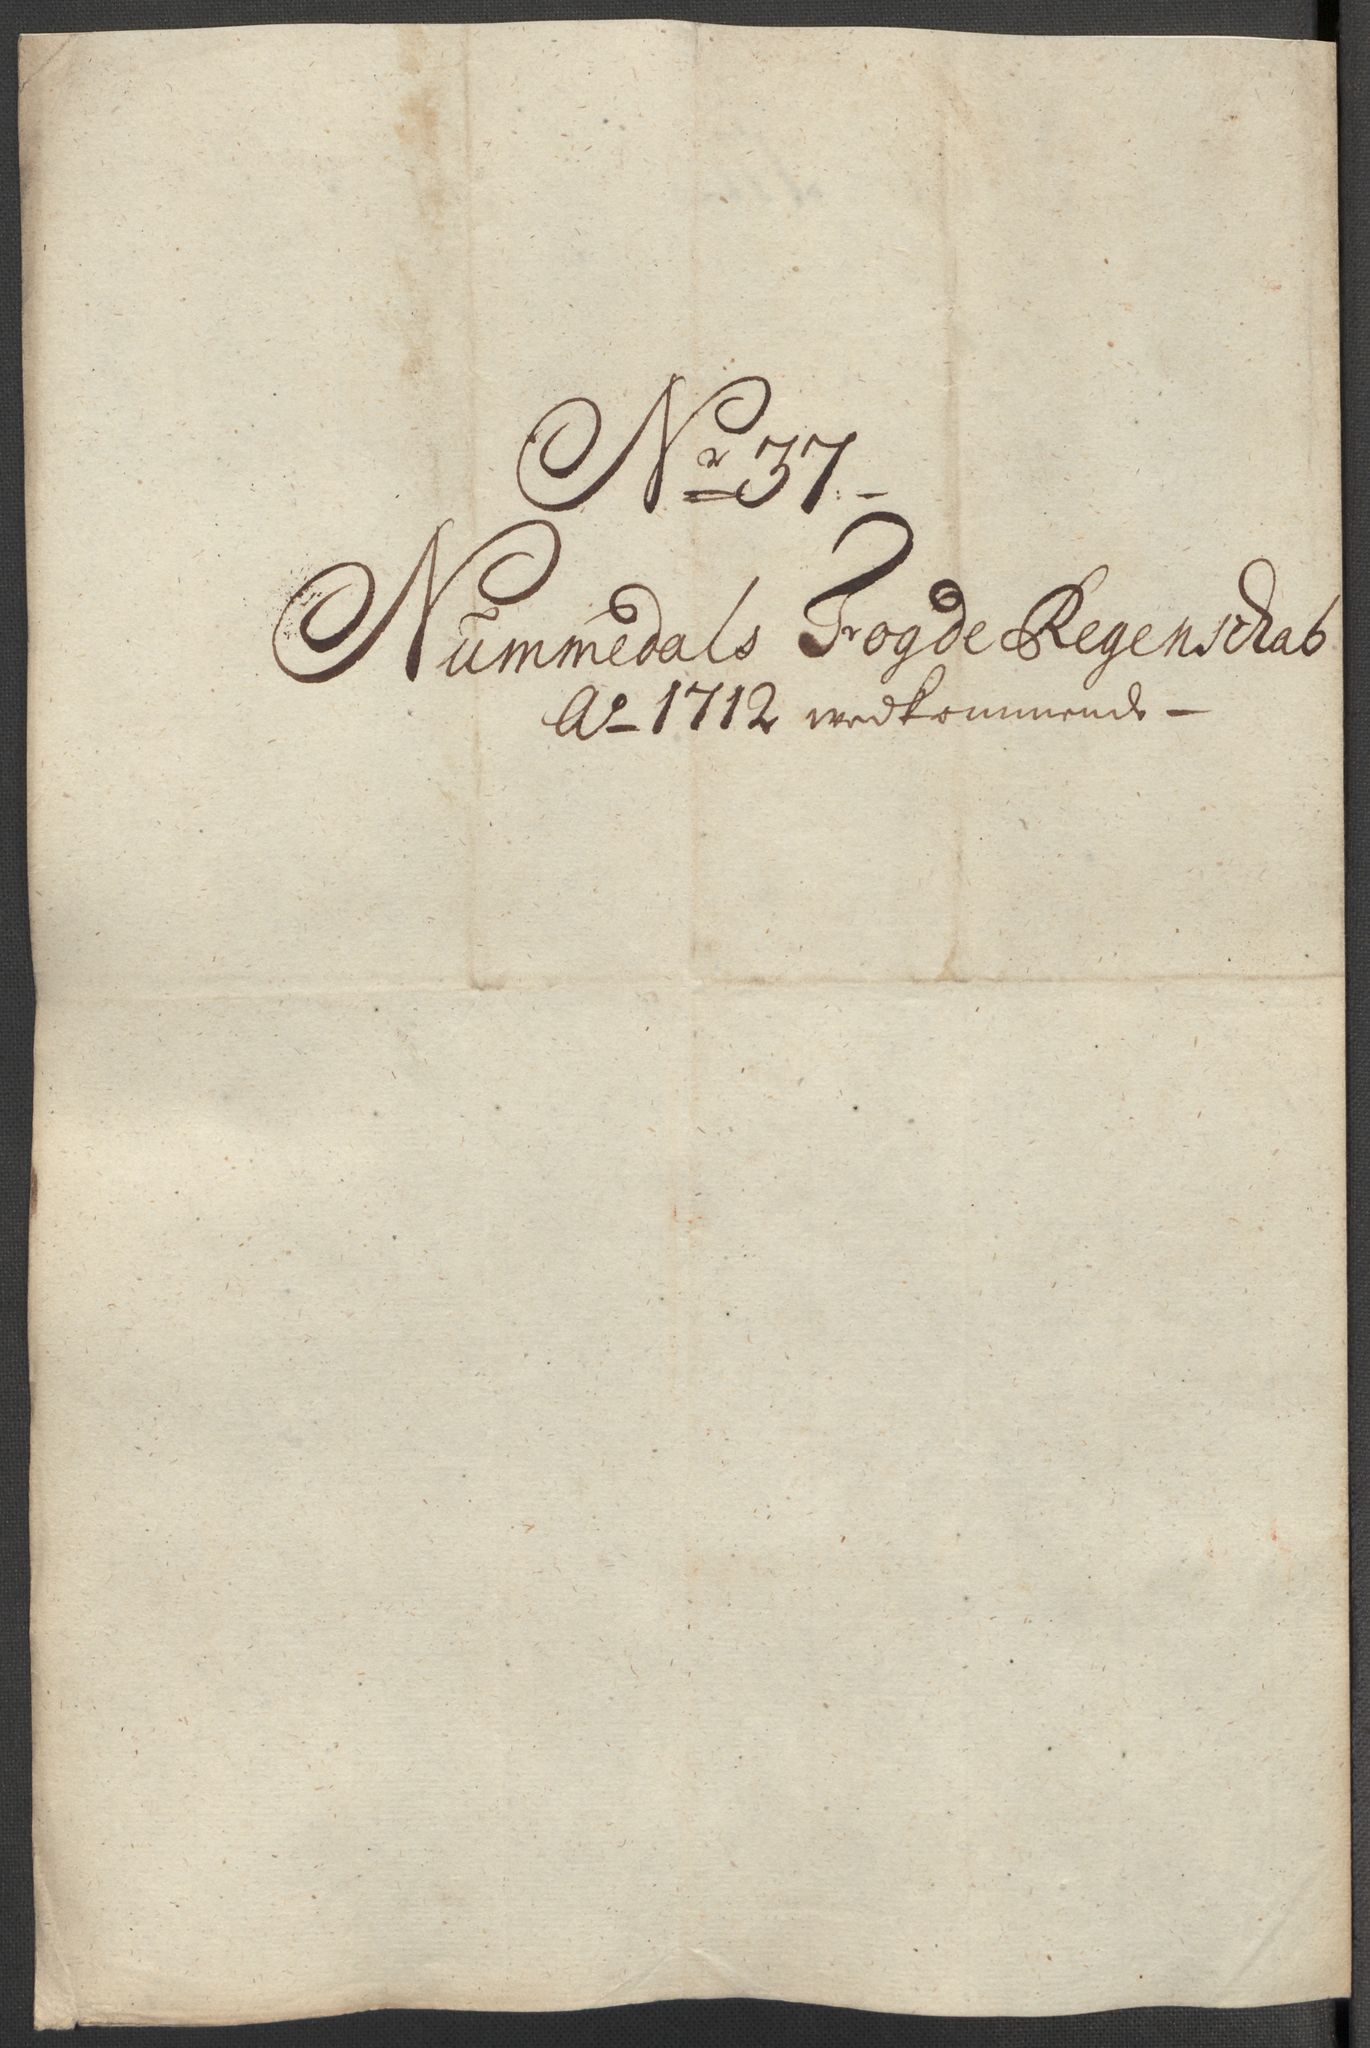 Nr 37.
Nummedals Fogde Regenschab
Ao 1712 wedkommende